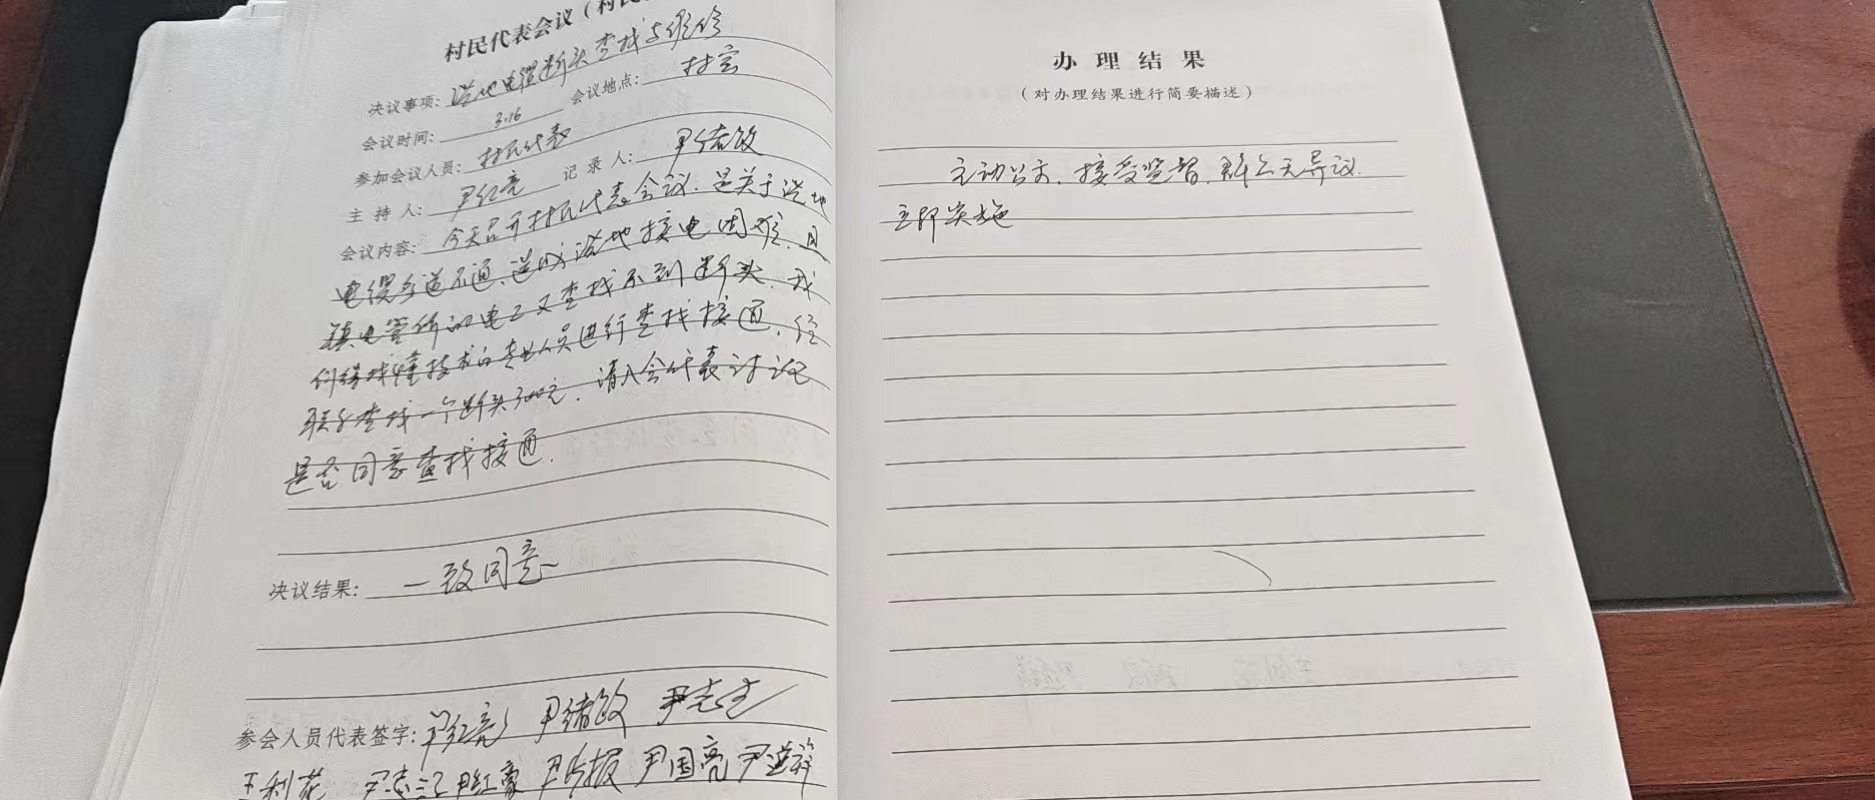 村民代表会议（村民
决议事项：浇地电缆断头查找与维修
会议时间：3.16 会议地点：村室
参加会议人员：村民代表
主持人：尹红亮 记录人：尹绪敏
会议内容：今天召开村民代表会议，是关于浇地
电缆多道不通，造成浇地接电困难，且
镇电管所的电工又查找不到断头，我
们得找懂技术的专业人员进行查找接通，经
联系查找一个断头300元，请入会代表讨论
是否同意查找接通．
决议结果：一致同意
参会人员代表签字：尹红亮 尹绪敏 尹志生
王利花 尹红豪 尹国亮 尹进祥
办理结果
（对办理结果进行简要描述）
主动公示，接受监督，群众无异议．
立即实施